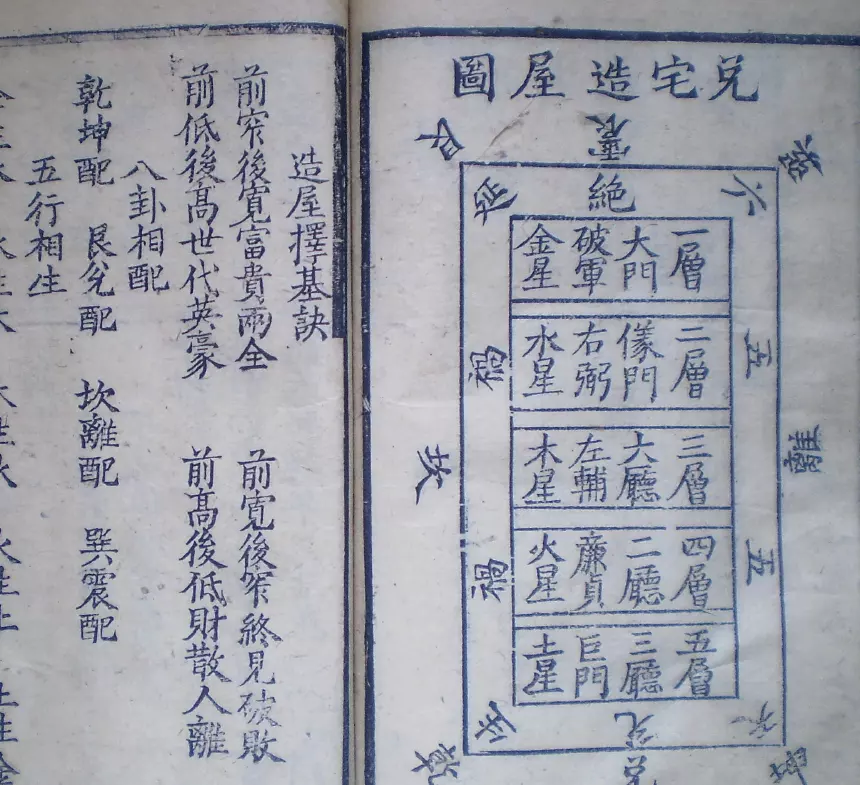 兌宅造屋圖
震
絶
一層 大門 破軍 金星
二層 儀門 右弼 水星
三層 大廳 左輔 木星
四層 二廳 廉貞 火星
五層 三廳 巨門 土星
六
五
五
離
禍
禍
坎
延
生
兌
乾
造屋擇基訣
前窄後寬富貴兩全 前寬後窄終見破敗
前低後高世代英豪 前高後低財散人離
八卦相配
乾坤配 艮兌配 坎離配 巽震配
五行相生